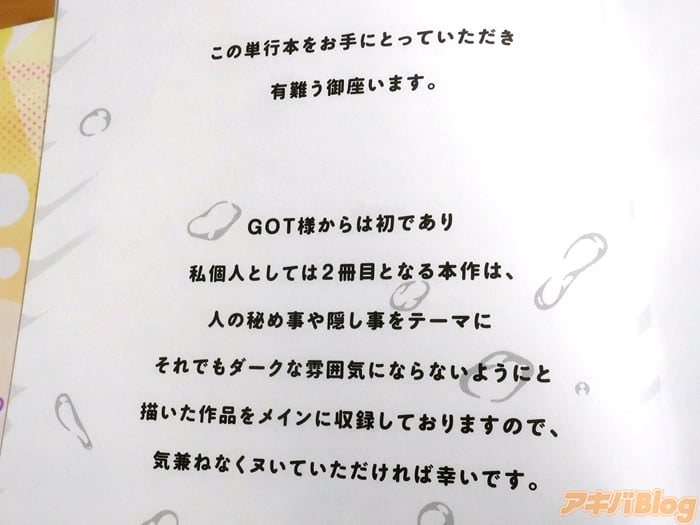 この単行本をお手にとっていただき
有難う御座います。
GOT様からは初であり
私個人としては2冊目となる本作は、
人の秘め事や隠し事をテーマに
それでもダークな雰囲気にならないようにと
描いた作品をメインに収録しておりますので、
気兼ねなくヌいていただければ幸いです。
アキバBlog